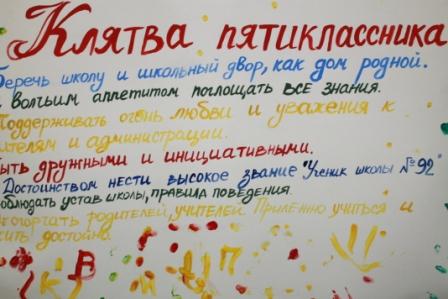 Клятва пятиклассника
Беречь школу и школьный двор, как дом родной.
волчьим аппетитом поглощать все знания.
Поддерживать огонь любви и уважения к
учителям и администрации.
Быть дружными и инициативными.
Достоинством нести высокое звание "Ученик школы №92
облюдать устав школы, правила поведения.
Не огорчать родителей, учителей. Прилежно учиться и
жить достойно.
К В П